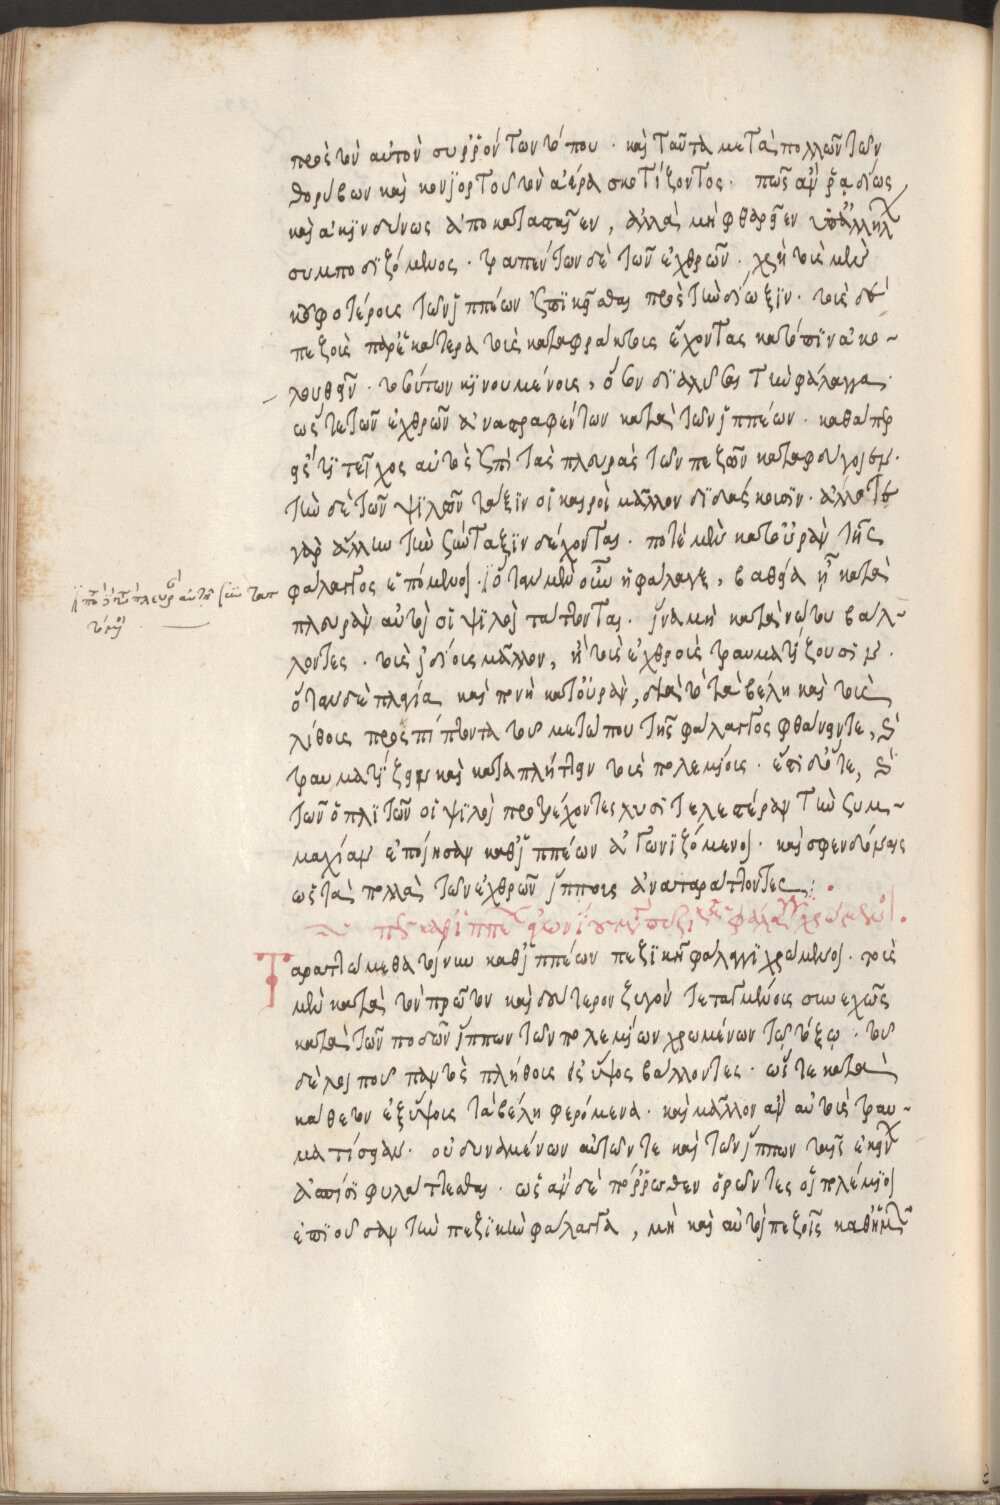 πρὸς τὸν αὐτὸν συῤῥεόντων τόπον · καὶ ταῦτα μετὰ πολλῶν τῶν
θορύβων καὶ κονϊορτοῦ τὸν ἀέρα σκοτίζοντος · πῶς ἂν ῥαδίως
καὶ ἀκινδύνως ἀποκατασταῖεν, ἀλλὰ μὴ φθαρεῖεν ὑπ' ἀλλήλ
συμποδϊζόμενος · τραπέντων δὲ τῶν ἐχθρῶν · χρὴ τοὺς μὲν
κουφοτέροις τῶν ἱππέων πρὸς τὴν δίωξϊν · τοὺς δὲ
πεζοὺς παρ' ἑκάτερα τοὺς καταφράκτους ἔχοντας κατόπϊν ἀκο-
λουθεῖν · τούτων κϊνουμένοις, τὴν φάλαγγα
ὥστε τῶν ἐχθρῶν ἀναστραφέντων κατὰ τῶν ἱππέων · καθάπερ
εἰς τεῖχος αὐτοὺς ἐπὶ τὰς πλευρὰς τῶν πεζῶν καταφεύγειν ·
τὴν δὲ τῶν ψϊλῶν τάξϊν οἱ καιροὶ μᾶλλον δϊδάσκουσϊν · ἄλλοτε
γὰρ ἄλλην τὴν σύνταξϊν δέχονται · ποτὲ μὲν κατ' οὐρὰν τῆς
φάλαγγος ἑπόμενοι · ὅταν μὲν οὖν ἡ φάλαγξ, βαθεῖα ἦ κατὰ
πλευρὰν αὐτοὶ οἱ ψϊλοὶ τάττονται · ἵνα μὴ κατὰ νώτου βάλ-
λοντες · τοὺς ἰδίους μᾶλλον, ἢ τοὺς ἐχθροὺς τραυματίζουσϊν ·
ὅταν δὲ πλαγία καὶ στενὴ κατ' οὐρὰν, διὰ τὸ τὰ βέλη καὶ τοὺς
λίθους προσπίπτοντα τοῦ μετώπου τῆς φάλαγγος φθάνειν τε,
τραυματίζειν καὶ καταπλήττειν τοὺς πολεμίους ·
τῶν ὁπλϊτῶν οἱ ψϊλοὶ προτρέχοντες λυσϊτελεστέραν τὴν συμ-
μαχίαν ἐποίησαν καθ' ἱππέων ἀγωνϊζόμενοι · καὶ σφενδόναις
ὡς τὰ πολλὰ τῶν ἐχθρῶν ἵππους ἀναταράττοντες :·
Ταραττώμεθα τοίνυν καθ' ἱππέων πεζϊκῇ φάλαγγϊ χρώμενοι · τοὺς
μὲν κατὰ τὸν πρῶτον καὶ δεύτερον ζυγὸν τεταγμένοις συνεχῶς
κατὰ τῶν ποδῶν ἵππων τῶν πολεμίων χρωμένων τῷ τόξῳ · τοῦ
δὲ λοιποῦ παντὸς πλήθους εἰς ὕψος βάλλοντες · ὥστε κατὰ
κάθετον ἐξ ὕψους τὰ βέλη φερόμενα · καὶ μᾶλλον ἂν αὐτοὺς τραυ-
ματίσειαν · οὐ δυναμένων αὐτῶν τε καὶ τῶν ἵππων
ἀσπίσϊ φυλάττεσθαι · ὡς ἂν δὲ πόῤῥωθεν ὁρῶντες οἱ πολέμϊοι
ἐπϊοῦσαν τὴν πεζϊκὴν φάλαγγα, μὴ καὶ αὐτοὶ πεζοὶ καθ' ἡμῶν